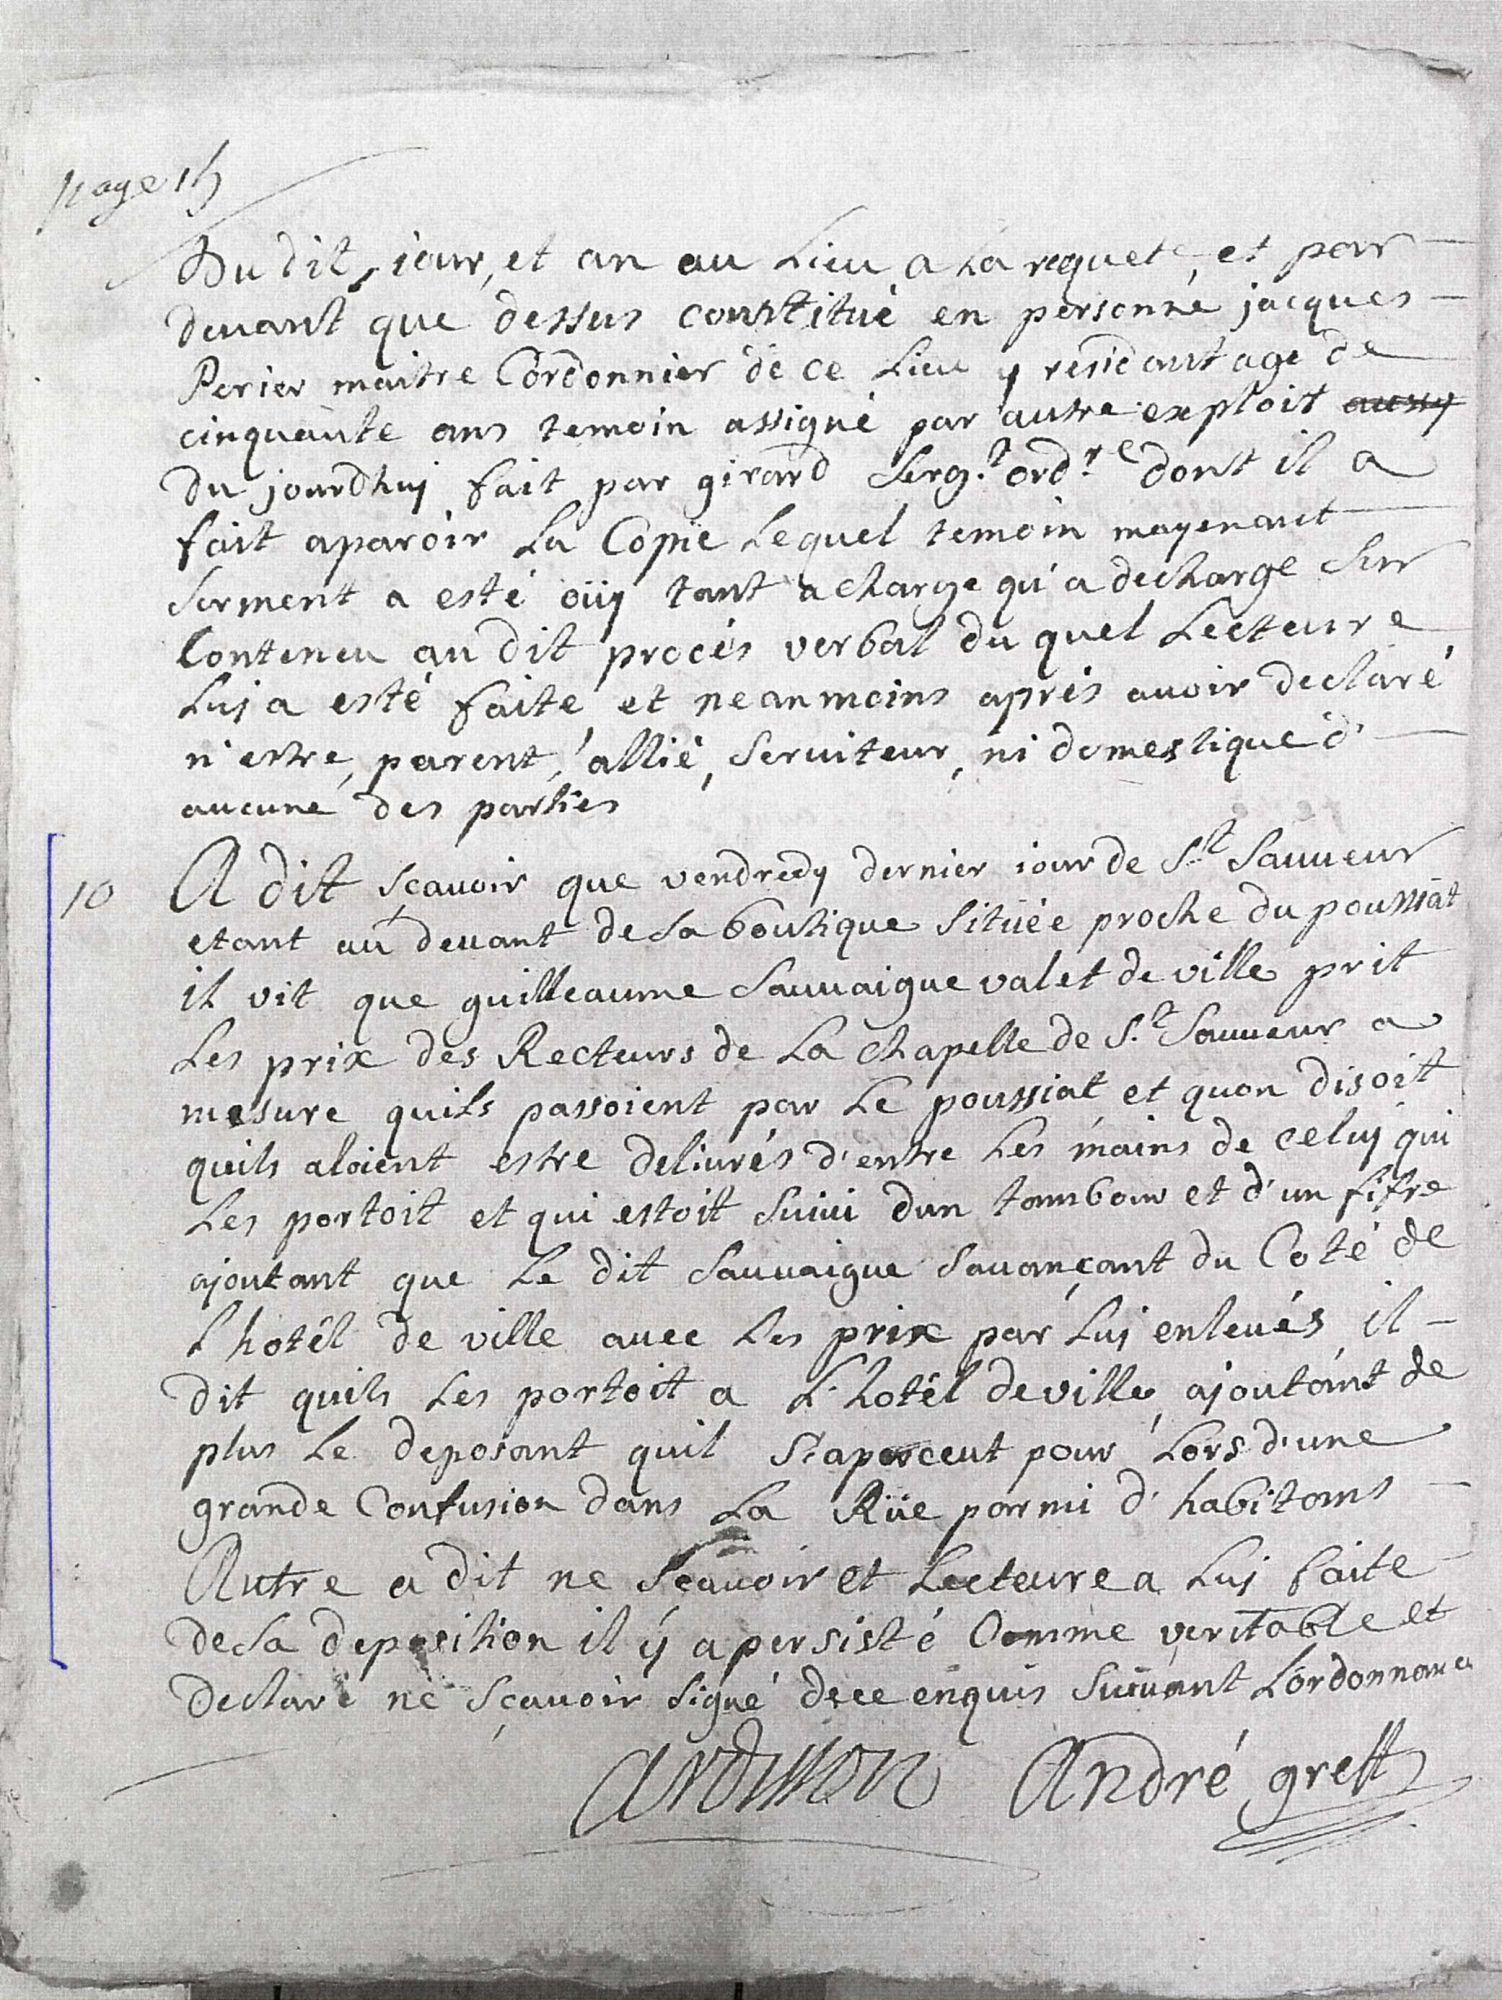 page 15
Du dit, jour, et an au Lieu a La requete, et par
devant que dessus constitué en personne jacques
Perier maitre Cordonnier de ce Lieu y residant agé de
cinquante ans temoin assigné par autre exploit aussy
du jourdhuy fait par girard serg.t ord.re dont il a
fait aparoir La Copie Lequel temoin moyenant
serment a esté oüy tant a charge qu'a decharge sur
Contenu au dit procés verbal du quel Lecteure
Luy a esté faite, et neanmoins aprés avoir declaré
n'estre, parent, allié, serviteur, ni domestique d'
aucune des parties
10 A dit sçavoir que vendredy dernier jour de S.t Sauveur
etant au devant de sa boutique située proche du poussiat
il vit que guilleaume Sauvaigue valet de ville prit
Les prix des Recteurs de La chapelle de S.t Sauveur a
mesure quils passoient par Le poussiat et quon disoit
quils aloient estre delivrés d'entre Les mains de celuy qui
Les portoit et qui estoit suivi dun tambour et d'un fifre
ajoutant que Le dit Sauvaigue savançant du Coté de
L'hotél de ville avec Les prix par Luy enlevés il
dit quils Les portoit a L'hotél de ville, ajoutant de
plus Le deposant quil s'aperceut pour Lors d'une
grande Confusion dans La Rüe parmi d'habitans
Autre a dit ne sçavoir et Lecteure a Luy faite
de sa deposition il ÿ a persisté Comme veritable et
declaré ne sçavoir signé de ce enquis suivant Lordonnance
Ardisson André greff